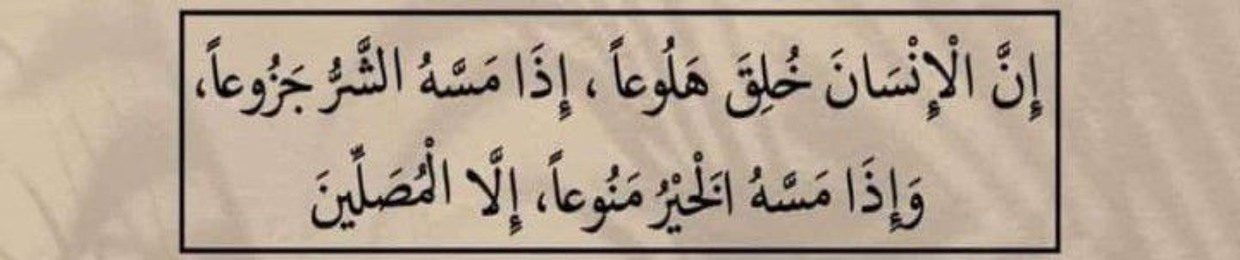 إِنَّ الْإِنْسَانَ خُلِقَ هَلُوعاً ، إِذَا مَسَّهُ الشَّرُّ جَزُوعاً،
وَإِذَا مَسَّهُ الْخَيْرُ مَنُوعاً، إِلَّا الْمُصَلِّينَ